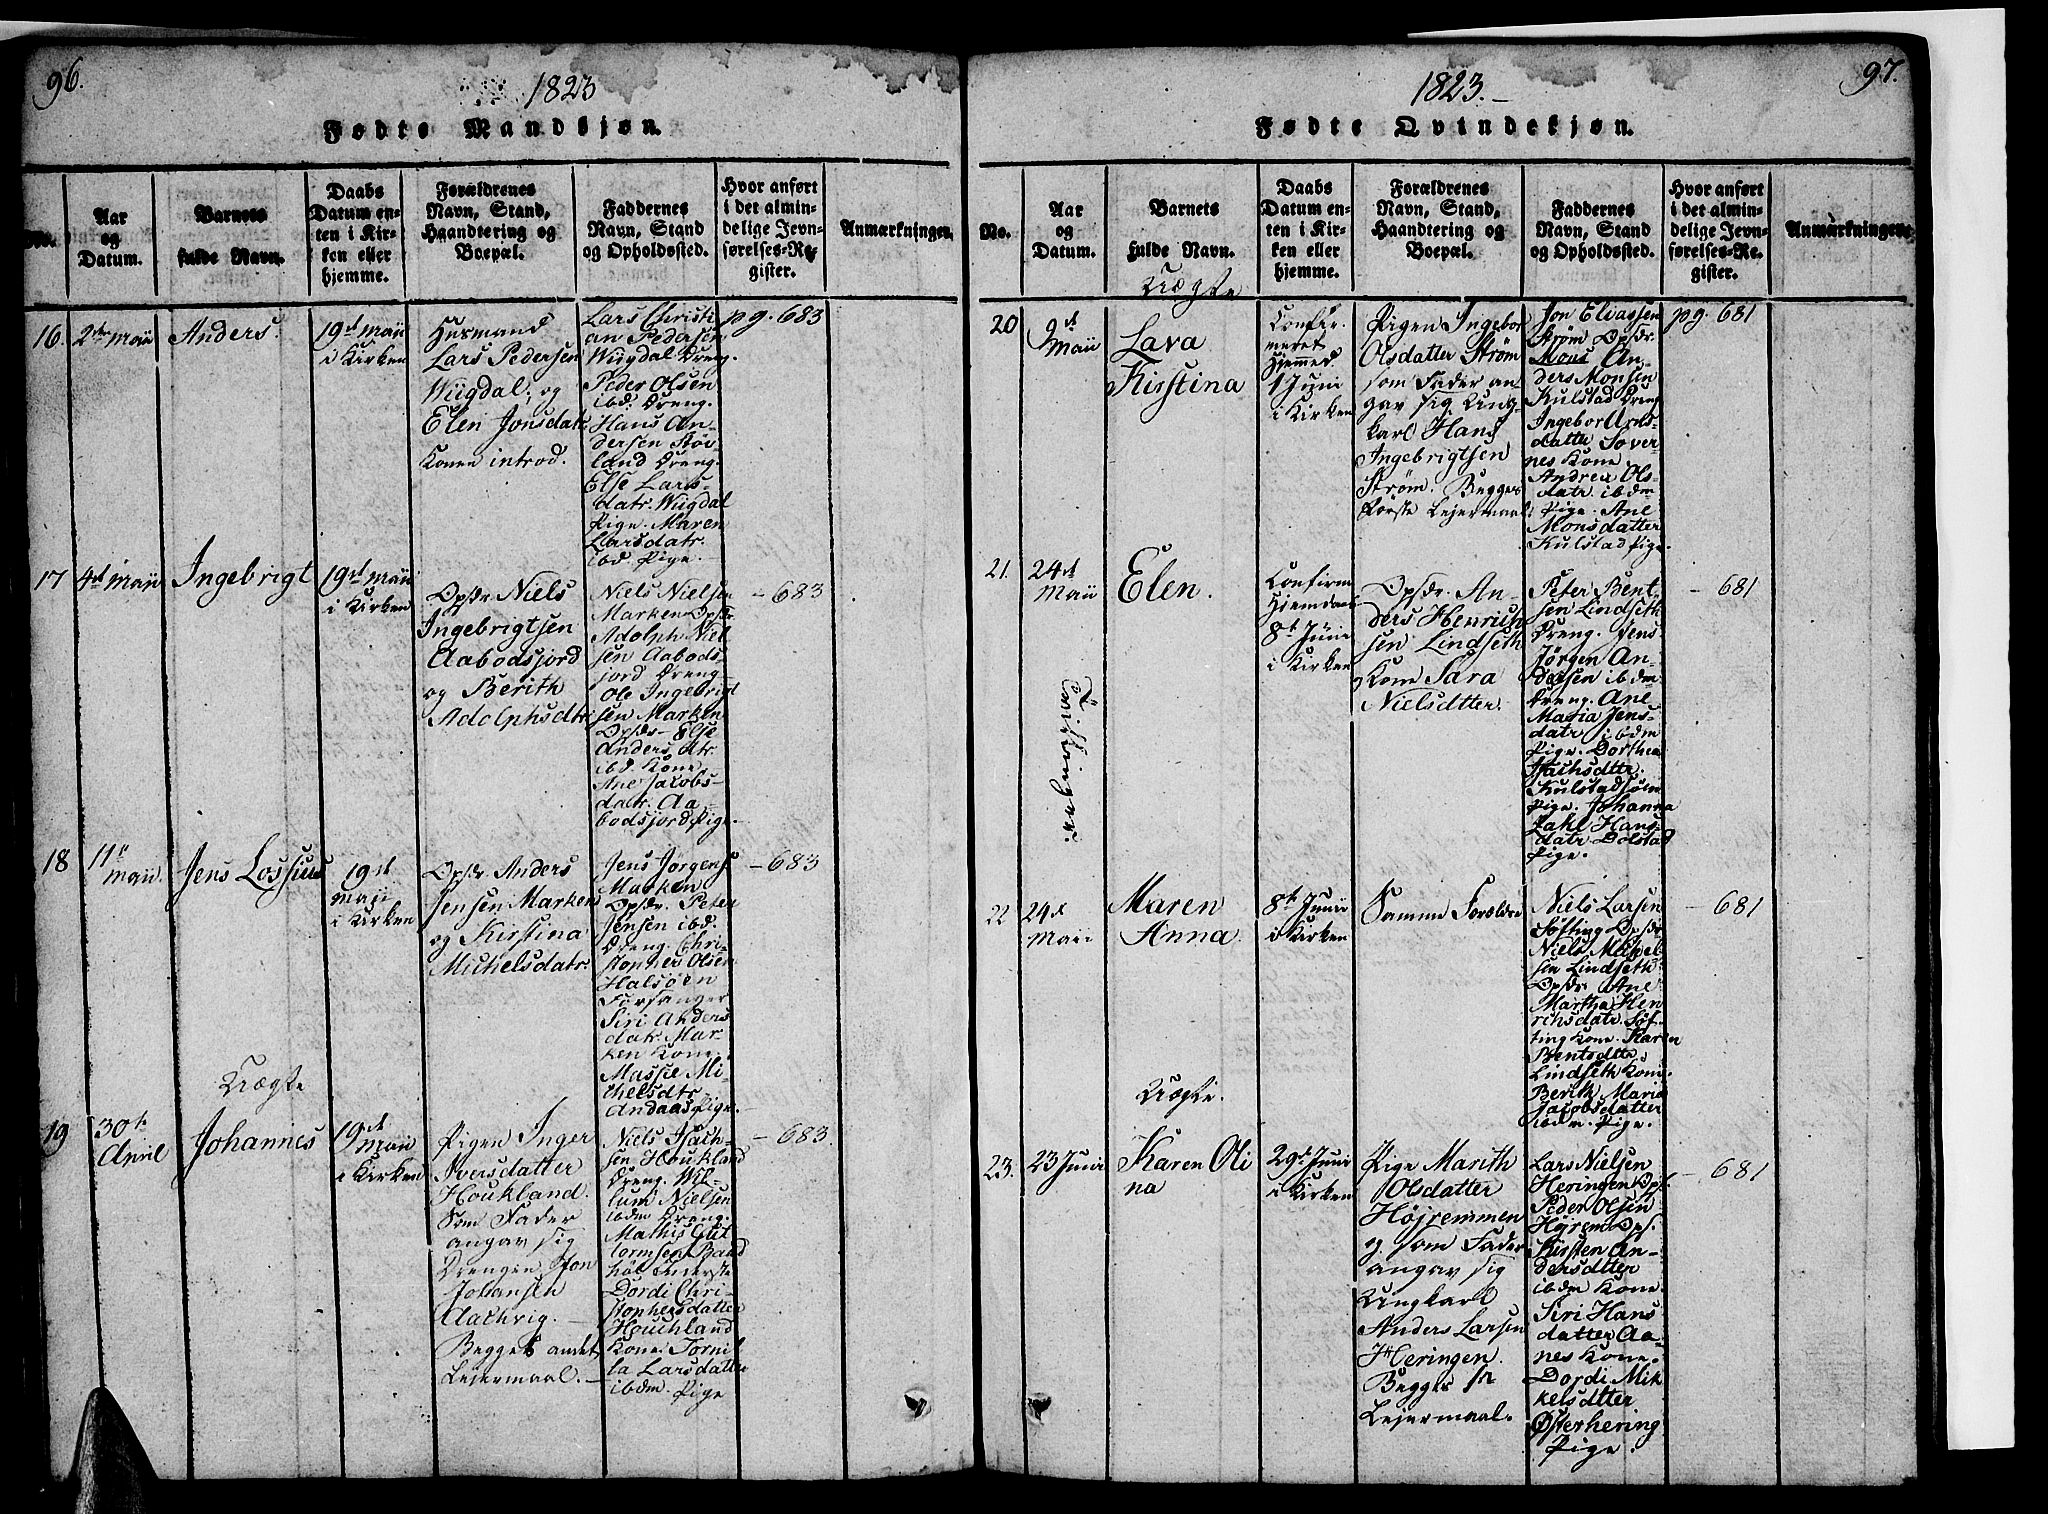 96.
1823
Fødte Mandkjøn.
No.
Aar
og
Datum.
Barnets
fulde Navn.
Daabs
Datum en-
ten i Kir-
ken eller
hjemme.
Forældrenes
Navn, Stand,
Haandtering og
Boepæl.
Faddernes
Navn, Stand
og Opholdssted.
Hvor anført
i det almin-
delige Jevn-
førelses-Re-
gister.
Anmærkninger.
16.
2den Maii
Anders.
19de Maii
i Kirken
Husmand
Lars Pedersen
Wügdal, og
Elen Jonsdatr
Konen introd.
Lars Christi
an Pedersen
Wügdal Dreng.
Peder Olsen
ibd. Dreng.
Hans An-
dersen Støv-
land Dreng.
Else Lars-
datr. Wügdal
Pige. Maren
Larsdatr.
ibd Pige.
pg. 683
17
4de Maii
Ingebrigt
19de Maii
i Kirken
Opsdr Niels
Ingebrigtsen
Aabodsjord
og Berith
Adolphsdtr
Niels Nielsen
Marken Opsdr
Adolph Niel
sen Aabods-
jord Dreng
Ole Ingebrigt
sen Marken
Opsdr - Else
Anders dtr.
ibd. Kone
Ane Jacobs-
datr. Aa-
bodsjord Pige.
- 683
18
11te
Maii.
Jens Lossius
19de
Maii
i Kirken
Opsdr Anders
Jensen Marken
og Kirstina
Michelsdatr.
Jens Jørgens
Marken
Opsdr. Peter
Jensen ibd.
Dreng. Chri-
stopher Olsen
Halsøen
Forsanger
Siri Anders
datr. Mar-
ken Kone.
Masse Mi-
chelsdtr
Andaas Pige.
- 683
Uægte
19
30te
April
Johannes
19de
Maii
i Kirken
Pigen Inger
Iversdatter
Houkland.
Som Fader
angav sig
Drengen Jon
Johansen
Aachvig.
Begges andet
Leiermaal.
Niels Isach-
sen Houkland
Dreng. Wil-
lum Nielsen
ibdm Dreng.
Mathis Gut
tormsen Band
høl Inderste
Dordi Chri-
stophersdatter
Houchland
Kone. Tornil
la Larsdatter
ibdm. Pige
- 683.
97.
1823.
Fødte Qvindekjøn.
No.
Aar
og
Datum.
Barnets
fulde Navn.
Daabs
Datum en-
ten i Kir-
ken eller
hjemme.
Forældrenes
Navn, Stand,
Haandtering og
Boepæl.
Faddernes
Navn, Stand
og Opholdssted.
Hvor anført
i det almin-
delige Jevn-
førelses-Re-
gister.
Anmærkninger.
Uægte
20
9de
Maii
Lava
Kirstina
Confir-
meret
Hjemmed.
1 Juni
i Kirken
Pigen Ingebor
Olsdatter Strøm
som Fader an
gav sig Ung-
karl Hans
Ingebrigtsen
Strøm. Begges
Første Lejermaal.
Jon Eliassen
Strøm Opsdr.
Mons An-
ders Monsen
Kulstad Dreng
Ingebor Arns-
datter Søver-
nes Kone
Andrea Ols-
datr. ibdm
Pige. Ane
Monsdatter
Kulstad Pige.
pg. 681
21.
24de
Maii
Elen.
Confirm
Hjemdaab
8de Juni
i Kirken
Opsdr. An-
ders Henrich
sen Lindseth
Kone Sara
Nielsdtter.
Peter Bent-
sen Lindseth
Dreng. Jens
Jørgen An-
dersen ibdm
Dreng. Ane
Maria Jens-
datr ibdm
Pige. Dorthea
Isachsdtter.
Kulstadsøen
Pige. Johanna
Zahl Hans-
datr Dolstad
Pige.
- 681
Tvillinger.
22
24de
Maii
Maren
Anna.
8de Junii
i Kirken
Samme Forældre
Niels Larsen
Søfting Opsdr
Niels Mikel-
sen Lindseth
Opsdr. Ane
Martha Hen
richsdatr. Søf-
ting Kone. Karen
Bentsdttr
Lindseth Kone.
Berith Maria
Jacobsdatter
ibdm. Pige.
- 681
Uægte.
23.
23 Juni
Karen Oli
na
29de Juni
i Kirken
Pige Marith
Olsdatter
Højremmen
og som Fader
angav sig
Ungkarl
Anders Larsen
Heringen.
Begges 1ste
Lejermaal.
Lars Nielsen
Heringen Ops.
Peder Olsen
Højrem Ops.
Kirsten An-
dersdtter
ibdm Kone.
Siri Hans-
datter Aa-
nes Kone.
Dordi Mik-
kelsdtter
Østerhering
Pige.
- 681